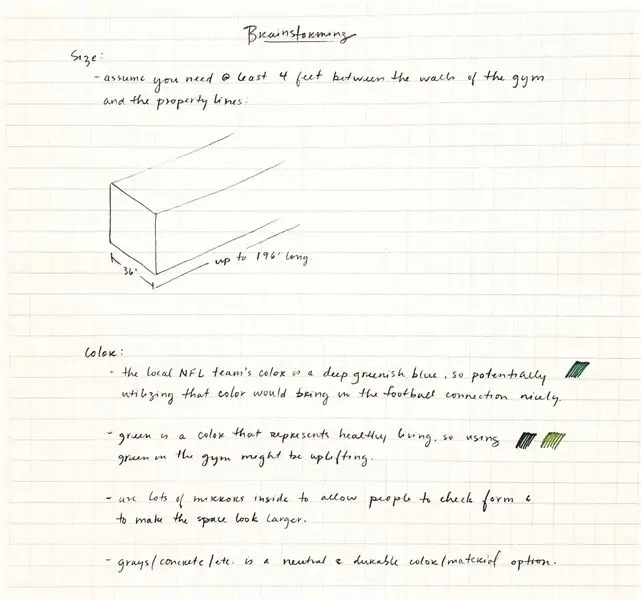 Brainstorming
Size:
- assume you need @ least 4 feet between the walls of the gym
and the property lines.
36'
up to 196' long.
Color:
- the local NFL team's color is a deep greenish blue, so potentially
utilizing that color would bring in the football connection nicely.
- green is a color that represents healthy living, so using
green in the gym might be uplifting.
- use lots of mirrors inside to allow people to check form &
to make the space look larger.
- grays/concrete/etc. is a neutral & durable color/material option.